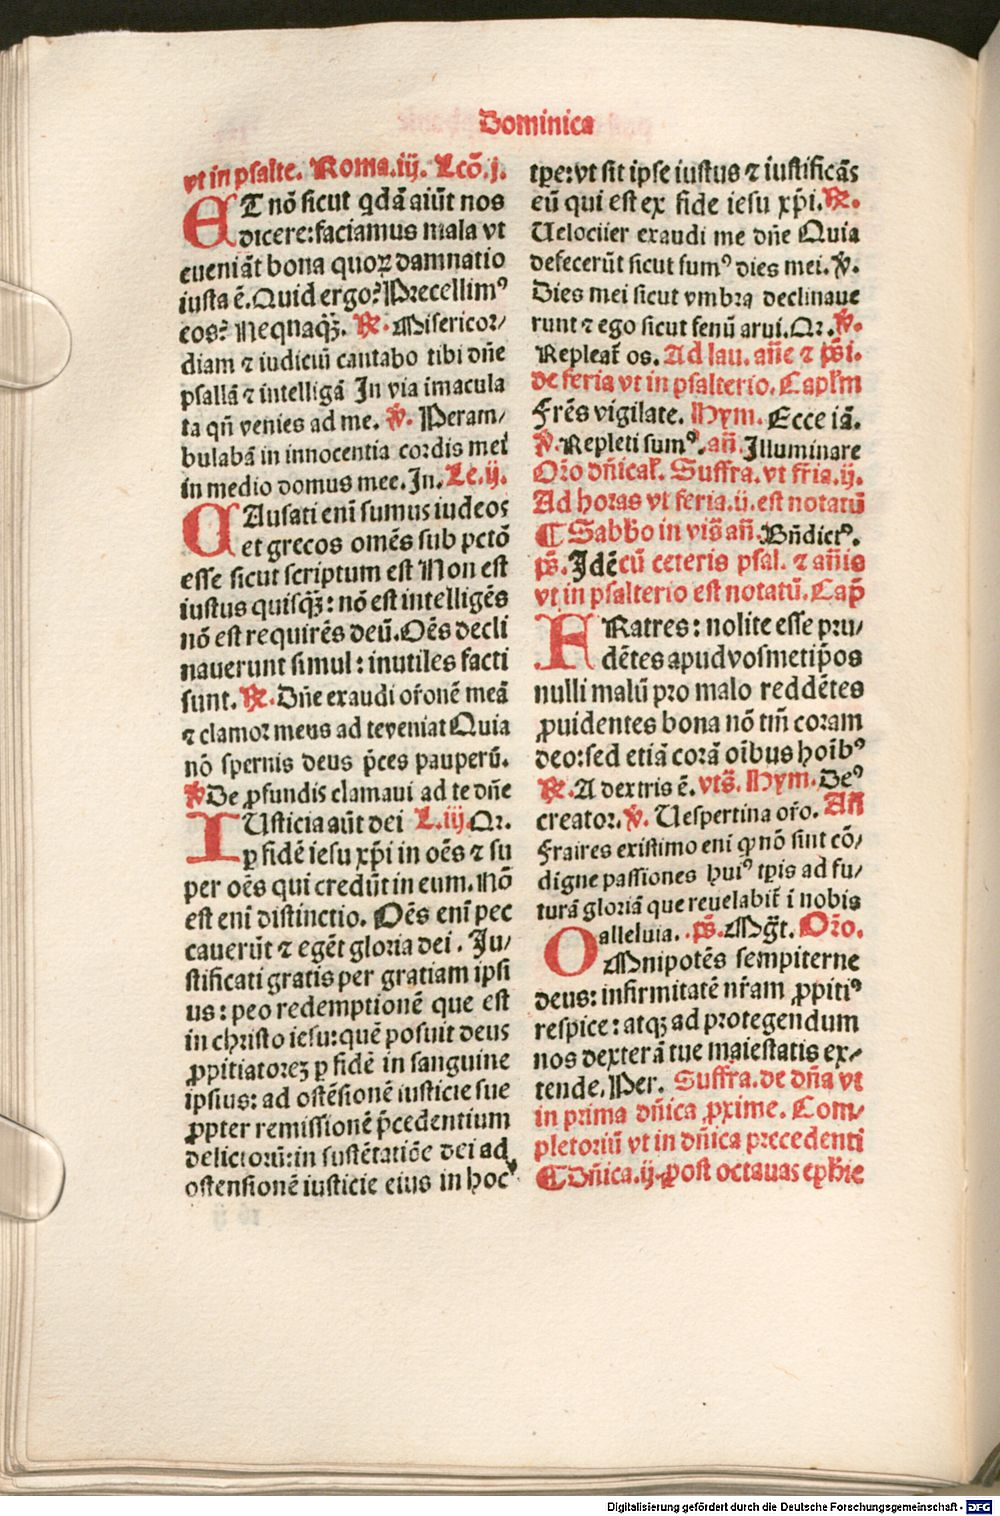 Dominica
vt in psalte. Roma.iij. Lcō.j.
ET nō sicut qdā aiūt nos
dicere:faciamus mala vt
eueniāt bona quoꝝ damnatio
iusta ē.Quid ergo? Precellimꝰ
eos? Nequaq̄ꝫ. ℟. Misericor/
diam ⁊ iudiciū cantabo tibi dn̄e
psallā ⁊ intelligā In via imacula
ta qn̄ venies ad me. ℣. Peram/
bulabā in innocentia cordis mei
in medio domus mee.In.Le.ij.
CAusati enī sumus iudeos
et grecos omēs sub pctō
esse sicut scriptum est Non est
iustus quisq̄ꝫ: nō est intelligēs
nō est requirēs deū.Oēs decli
nauerunt simul: inutiles facti
sunt. ℟. Dn̄e exaudi or̄onē meā
⁊ clamor meus ad te veniat Quia
nō spernis deus p̄ces pauperū.
℣ De ꝓfundis clamaui ad te dn̄e
IUsticia aūt dei L.iij. Qr.
ꝑ fidē iesu xp̄i in oēs ⁊ su
per oēs qui credūt in eum.Nō
est enī distinctio. Oēs enī pec
cauerūt ⁊ egēt gloria dei. Ju/
stificati gratis per gratiam ipsi
us: peo redemptionē que est
in christo iesu:quē posuit deus
ꝓpitiatoreꝫ ꝑ fidē in sanguine
ipsius: ad ostēsionē iusticie sue
ꝓpter remissionē p̄cedentium
delictorū:in sustētatiōe dei ad
ostensionē iusticie eius in hoc
tꝑe:vt sit ipse iustus ⁊ iustificās
eū qui est ex fide iesu xp̄i.℟.
Uelociter exaudi me dn̄e Quia
defecerūt sicut fumꝰ dies mei.℣.
Dies mei sicut vmbra declinaue
runt ⁊ ego sicut fenū arui.Qr.℣.
Repleat̄ os. Ad lau. an̄e ⁊ ps̄i.
de feria vt in psalterio. Caplm̄
Frēs vigilate. Hym. Ecce iā.
℣.Repleti sumꝰ.an̄.Illuminare
Or̄o dn̄ical̄. Suffra.vt fr̄ia.ij.
Ad horas vt feria.ij.est notatū
¶ Sabb̄o in vis̄ an̄. Bn̄dictꝰ.
ps̄.Idē cū ceteris psal. ⁊ an̄is
vt in psalterio est notatū.Cap̄
FRatres: nolite esse pru/
dētes apud vosmetip̄os
nulli malū pro malo reddētes
ꝓuidentes bona nō tm̄ coram
deo:sed etiā corā oībus hoībꝰ
℟.A dextris ē. vts̄. Hym.Deꝰ
creator.℣. Uespertina or̄o. An̄
Fratres existimo eni ꝙ nō sint cō/
digne passiones huiꝰ tꝑis ad fu/
turā gloriā que reuelabit̄ ī nobis
alleluia. .ps̄.Mg̅t. Or̄o.
OMnipotēs sempiterne
deus: infirmitatē nr̄am ꝓpitiꝰ
respice: atqꝫ ad protegendum
nos dexterā tue maiestatis ex/
tende.Per. Suffra.de dn̄a vt
in prima dn̄ica ꝓxime. Com/
pletoriū vt in dn̄ica precedenti
¶ Dn̄ica.ij.post octauas ep̄hie
Digitalisierung gefördert durch die Deutsche Forschungsgemeinschaft - DFG